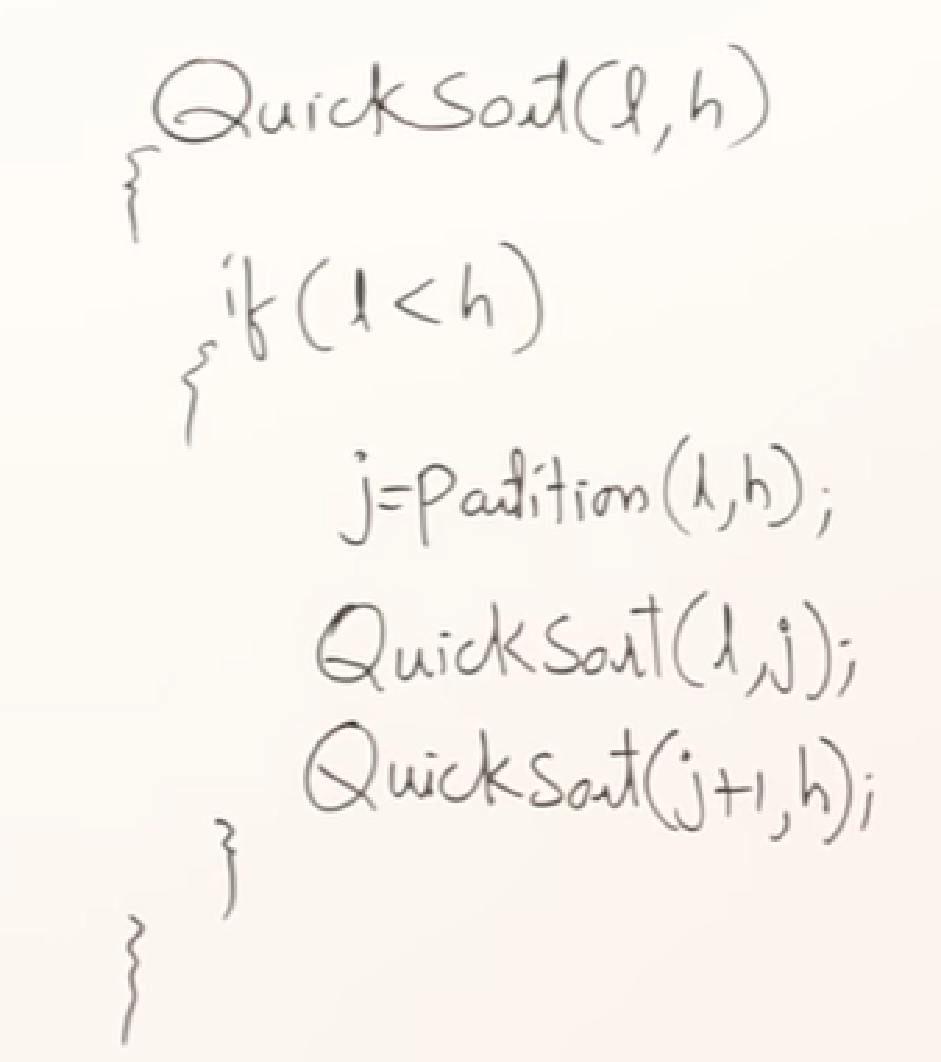 QuickSort(l,h)
{
if(l<h)
{
j=partition(l,h);
QuickSort(l,j);
QuickSort(j+1,h);
}
}